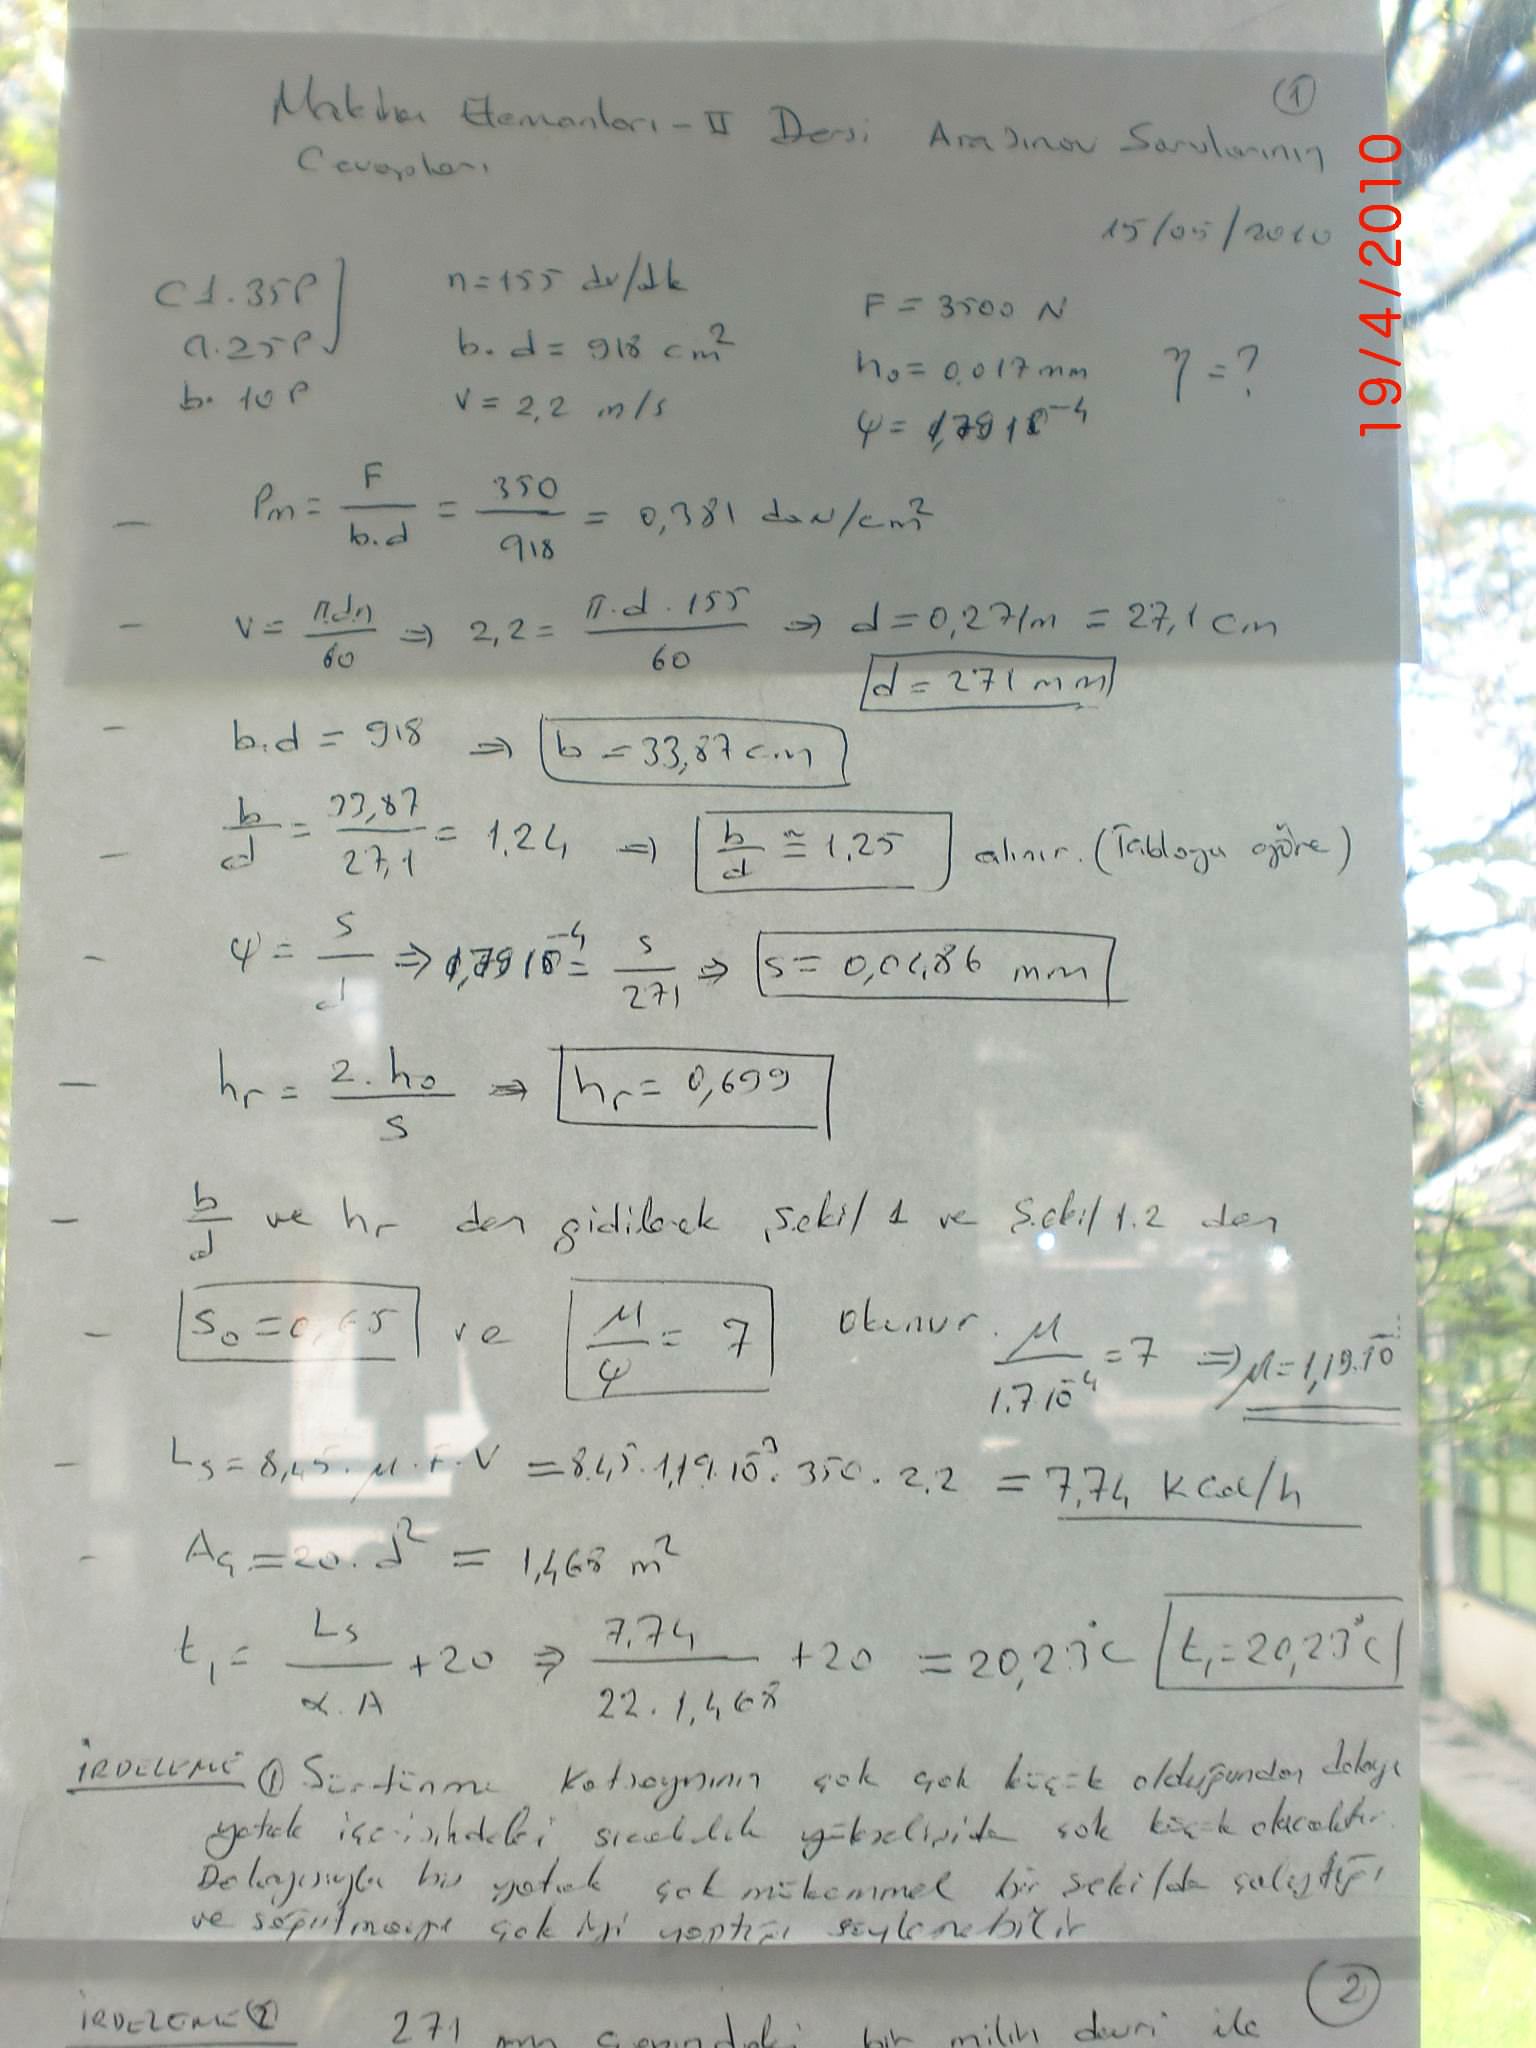 ①
Makina Elemanları-II Dersi Arasınav Sorularının
Cevapları
15/05/2010
19/4/2010
C1. 35P
a. 25P
b. 10P
n=155 dv/dk
b.d= 918 cm²
V= 2,2 m/s
F= 3500 N
h₀= 0.017 mm
η=?
Ψ=
- Pm= F/b.d = 350/918 = 0,381 daN/cm²
- V= π.d.n/60 ⇒ 2,2= π.d.155/60 ⇒ d=0,271m = 27,1 cm
d= 271 mm
- b.d= 918 ⇒ b=33,87 cm
- b/d = 33,87/27,1 = 1.24 ⇒ b/d ≅ 1,25 alınır. (Tabloya göre)
- Ψ= s/d ⇒ = s/271 ⇒ s= mm
- hr= 2.h₀/s ⇒ hr= 0,699
- b/d ve hr den gidilerek şekil 1 ve şekil 1.2 den
- So= ve μ/Ψ = 7 okunur. μ/1.7 10⁻⁴ =7 ⇒ μ=1,19.10⁻
- Ls=8,45.μ.F.V =8.45.1,19.10⁻³.350.2.2 = 7,74 kcal/h
- Aç=20.d² = 1,468 m²
t₁= Ls/α.A +20 ⇒ 7.74/22.1,468 +20 =20,23°C t₁=20,23°C
İRDELEME ① Sürtünme katsayısının çok çok küçük olduğundan dolayı
yatak içerisindeki sıcaklık yükselişide çok küçük olacaktır.
Dolayısıyla bu yatak çok mükemmel bir şekilde çalıştığı
ve soğutmayı çok iyi yaptığı söylenebilir
②
İRDELEME ② 271 mm çapındaki bir milin devri ile